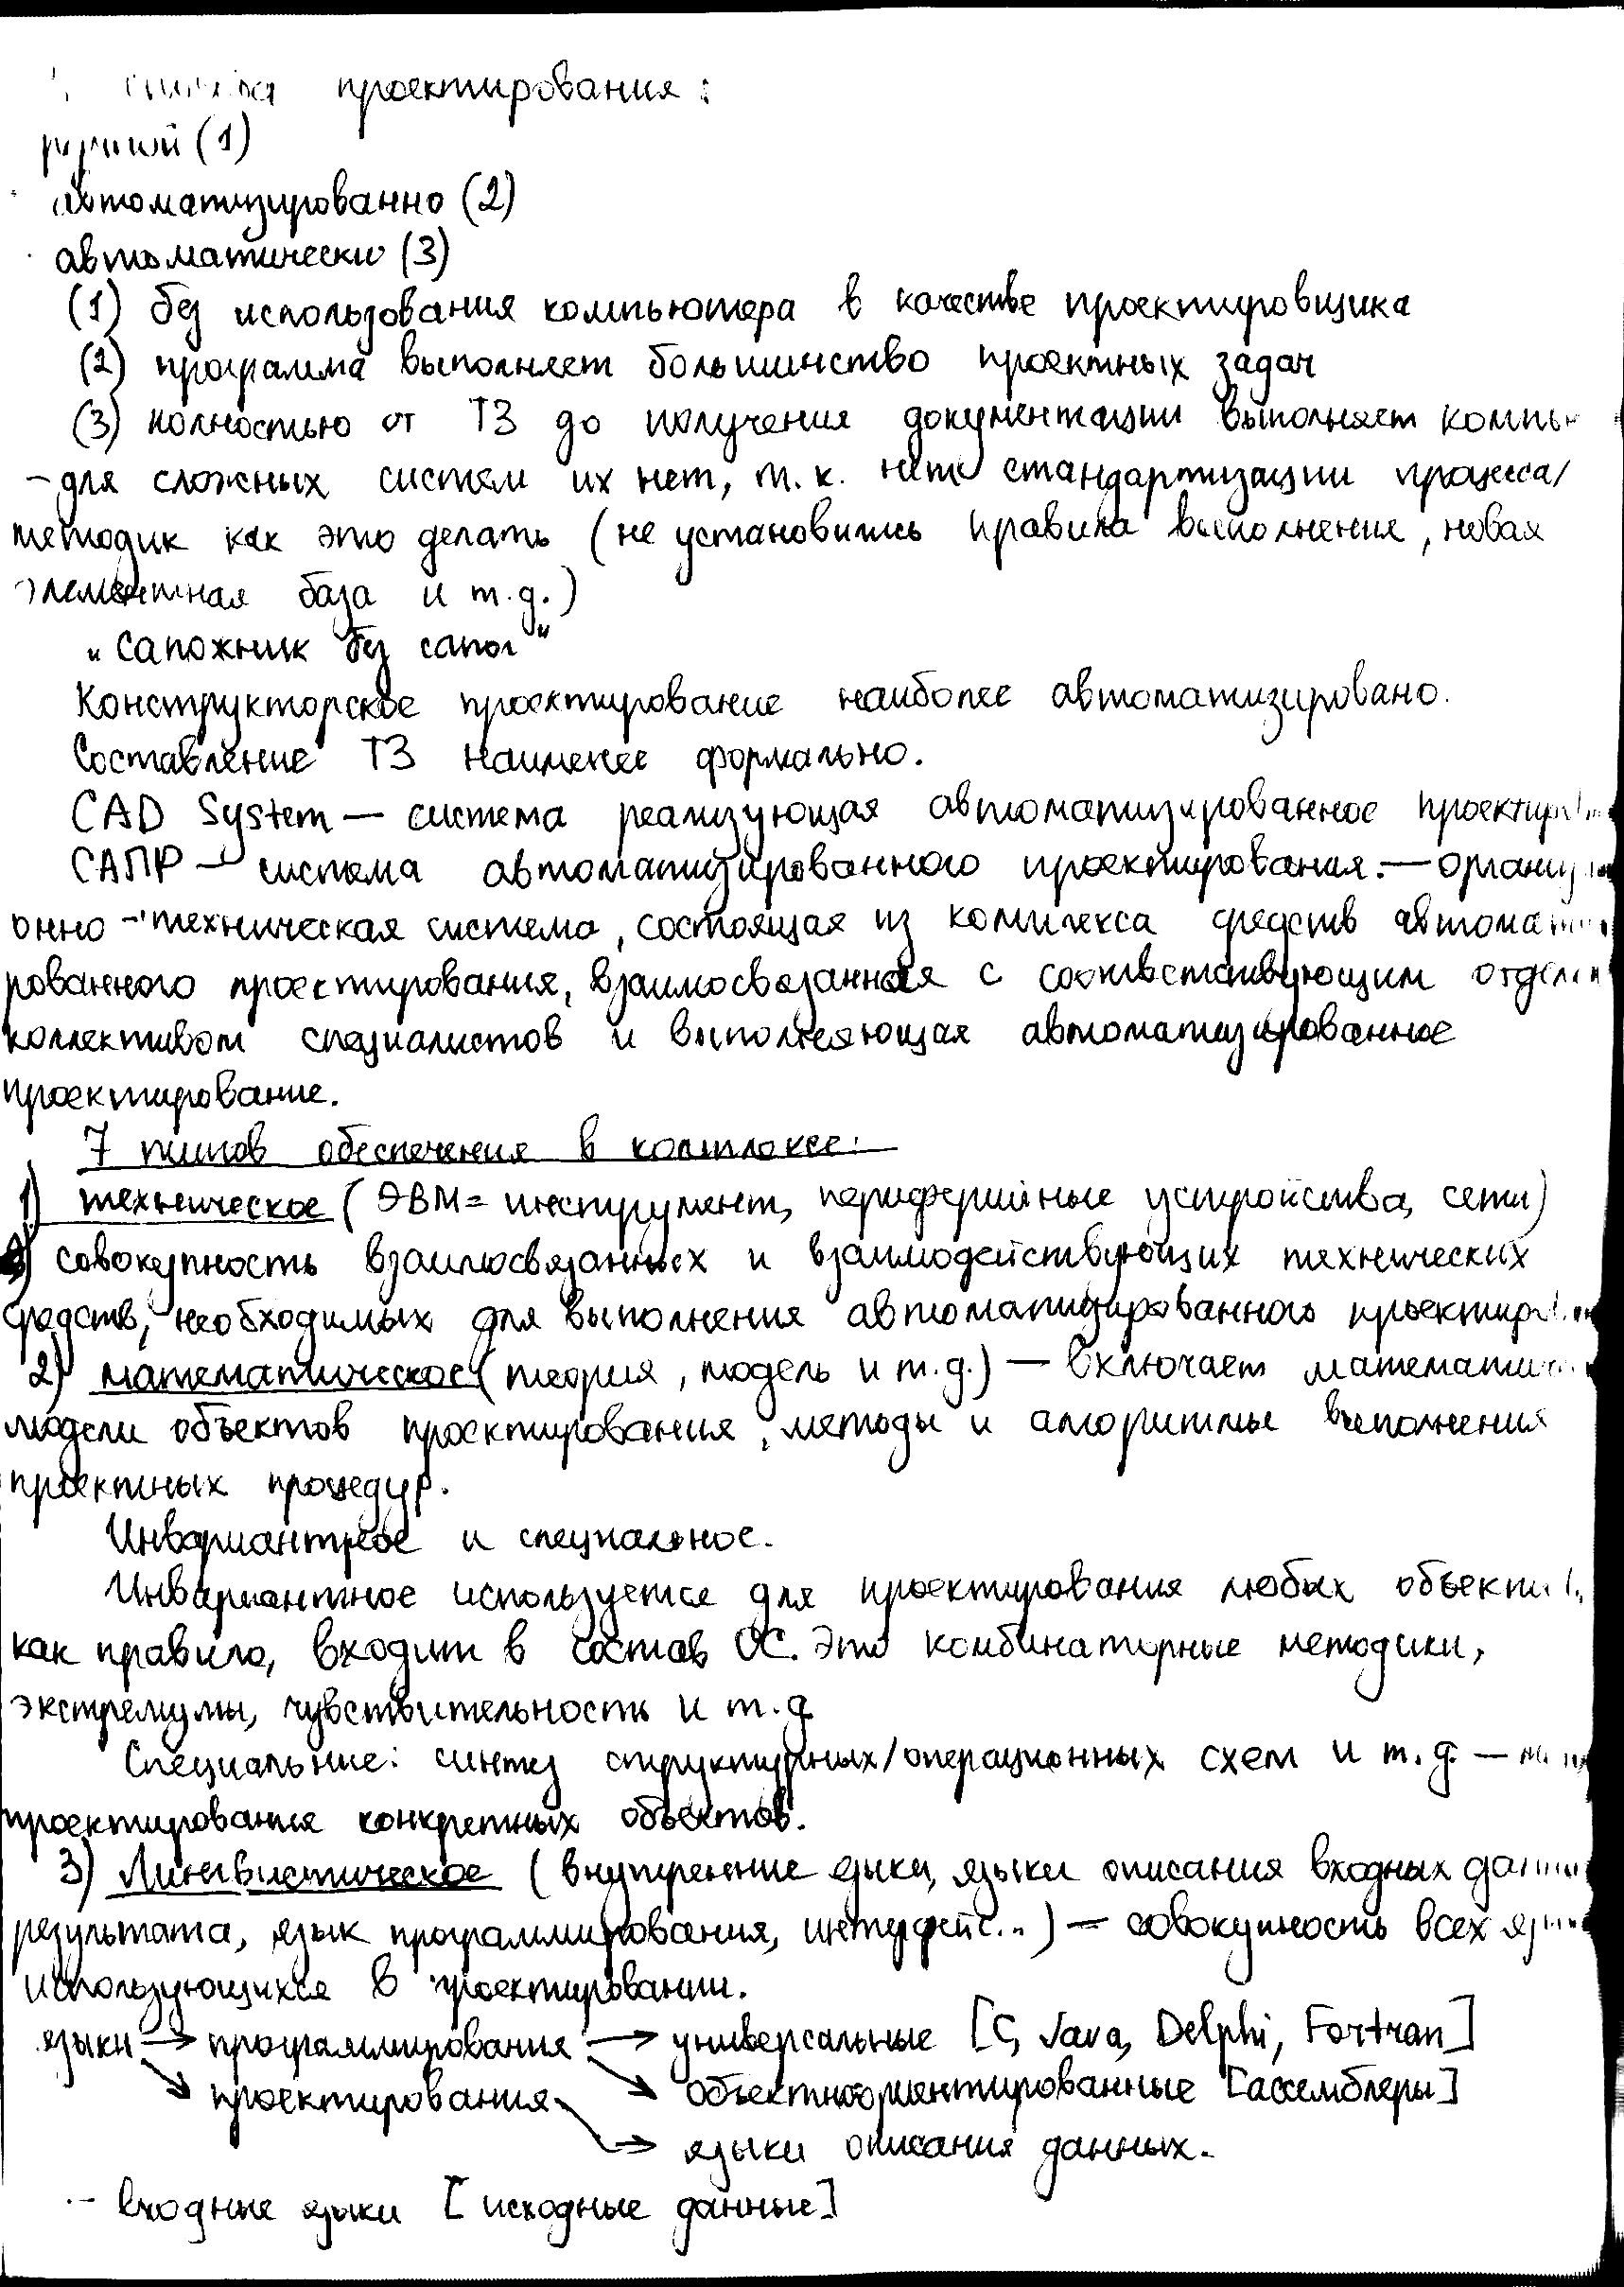 проектирования:
ручной (1)
автоматизированно (2)
автоматически (3)
(1) без использования компьютера в качестве проектировщика
(2) программа выполняет большинство проектных задач
(3) полностью от ТЗ до получения документации выполняет компь
- для сложных систем их нет, т.к. нет стандартизации процесса/
методик как это делать (не установились правила выполнения, новая
элементная база и т.д.)
"Сапожник без сапог"
Конструкторское проектирование наиболее автоматизировано.
Составление ТЗ наименее формально.
CAD System — система реализующая автоматизированное проектиро
САПР — система автоматизированного проектирования. — организ
онно-техническая система, состоящая из комплекса средств автомати
рованного проектирования, взаимосвязанная с соответствующим отделом
коллективом специалистов и выполняющая автоматизированное
проектирование.
7 типов обеспечения в комплексе:
1) техническое (ЭВМ = инструмент, периферийные устройства, сети)
совокупность взаимосвязанных и взаимодействующих технических
средств, необходимых для выполнения автоматизированного проектиро
2) математическое (теория, модель и т.д.) — включает математич
модели объектов проектирования, методы и алгоритмы выполнения
проектных процедур.
Инвариантное и специальное.
Инвариантное используется для проектирования любых объектов,
как правило, входит в состав ОС. Это комбинаторные методики,
экстремумы, чувствительность и т.д
Специальные: синтез структурных/операционных схем и т.д. —
проектирования конкретных объектов.
3) Лингвистическое (внутренние языки, языки описания входных данных
результата, язык программирования, интерфейс...) — совокупность всех язык
использующихся в проектировании.
языки → программирования → универсальные [C, Java, Delphi, Fortran]
↘ проектирования ↘ объектноориентированные [ассемблеры]
→ языки описания данных.
- входные языки [исходные данные]